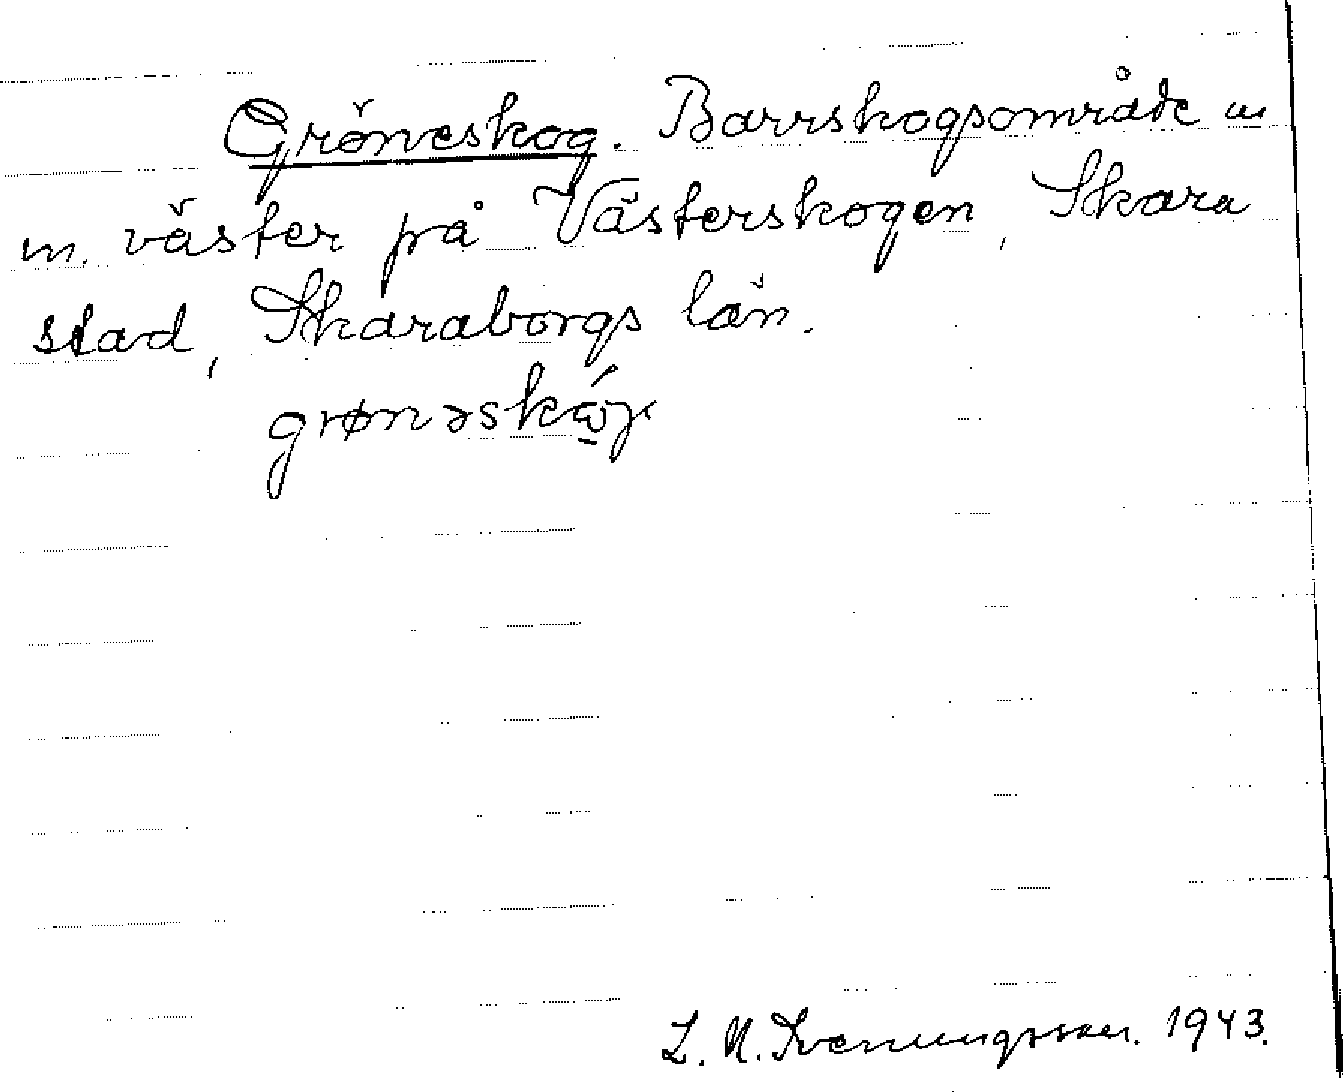 Gröneskog. Barrskogsområde n
n. väster på Västerskogen, Skara
stad, Skaraborgs län.
grønəskóg
L. N. Svenungsson. 1943.